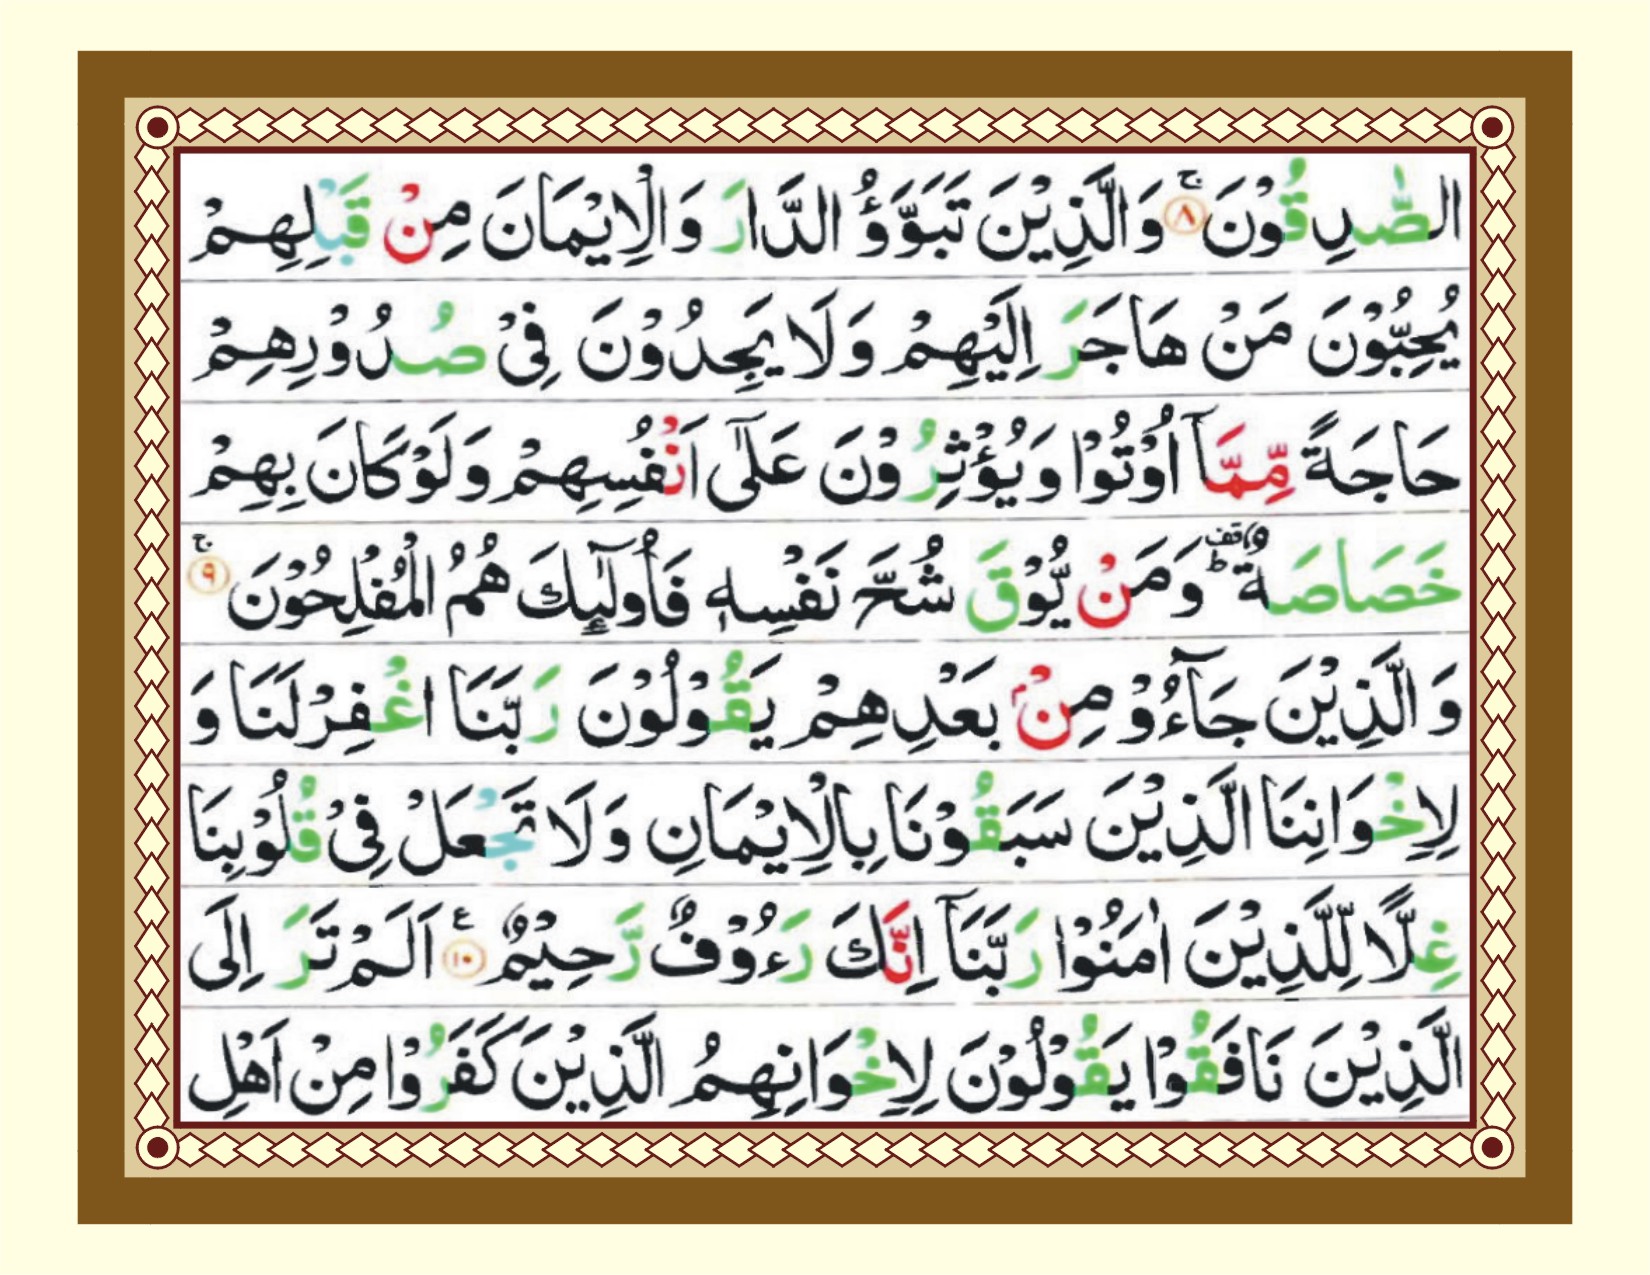 الصّٰدِقُوْنَ ۚ‏﴿۸﴾ وَالَّذِيْنَ تَبَوَّؤُ الدَّارَ وَالْاِيْمَانَ مِنْ قَبْلِهِمْ
يُحِبُّوْنَ مَنْ هَاجَرَ اِلَيْهِمْ وَلَا يَجِدُوْنَ فِىْ صُدُوْرِهِمْ
حَاجَةً مِّمَّاۤ اُوْتُوْا وَيُؤْثِرُوْنَ عَلٰٓى اَنْفُسِهِمْ وَلَوْ كَانَ بِهِمْ
خَصَاصَةٌ ؕ وَمَنْ يُّوْقَ شُحَّ نَفْسِهٖ فَاُولٰٓئِكَ هُمُ الْمُفْلِحُوْنَ ۚ‏﴿۹﴾
وَالَّذِيْنَ جَآءُوْ مِنْۢ بَعْدِهِمْ يَقُوْلُوْنَ رَبَّنَا اغْفِرْ لَنَا وَ
لِاِخْوَانِنَا الَّذِيْنَ سَبَقُوْنَا بِالْاِيْمَانِ وَلَا تَجْعَلْ فِىْ قُلُوْبِنَا
غِلًّا لِّلَّذِيْنَ اٰمَنُوْا رَبَّنَاۤ اِنَّكَ رَءُوْفٌ رَّحِيْمٌ ﴿۱۰﴾ ع اَلَمْ تَرَ اِلَى
الَّذِيْنَ نَافَقُوْا يَقُوْلُوْنَ لِاِخْوَانِهِمُ الَّذِيْنَ كَفَرُوْا مِنْ اَهْلِ